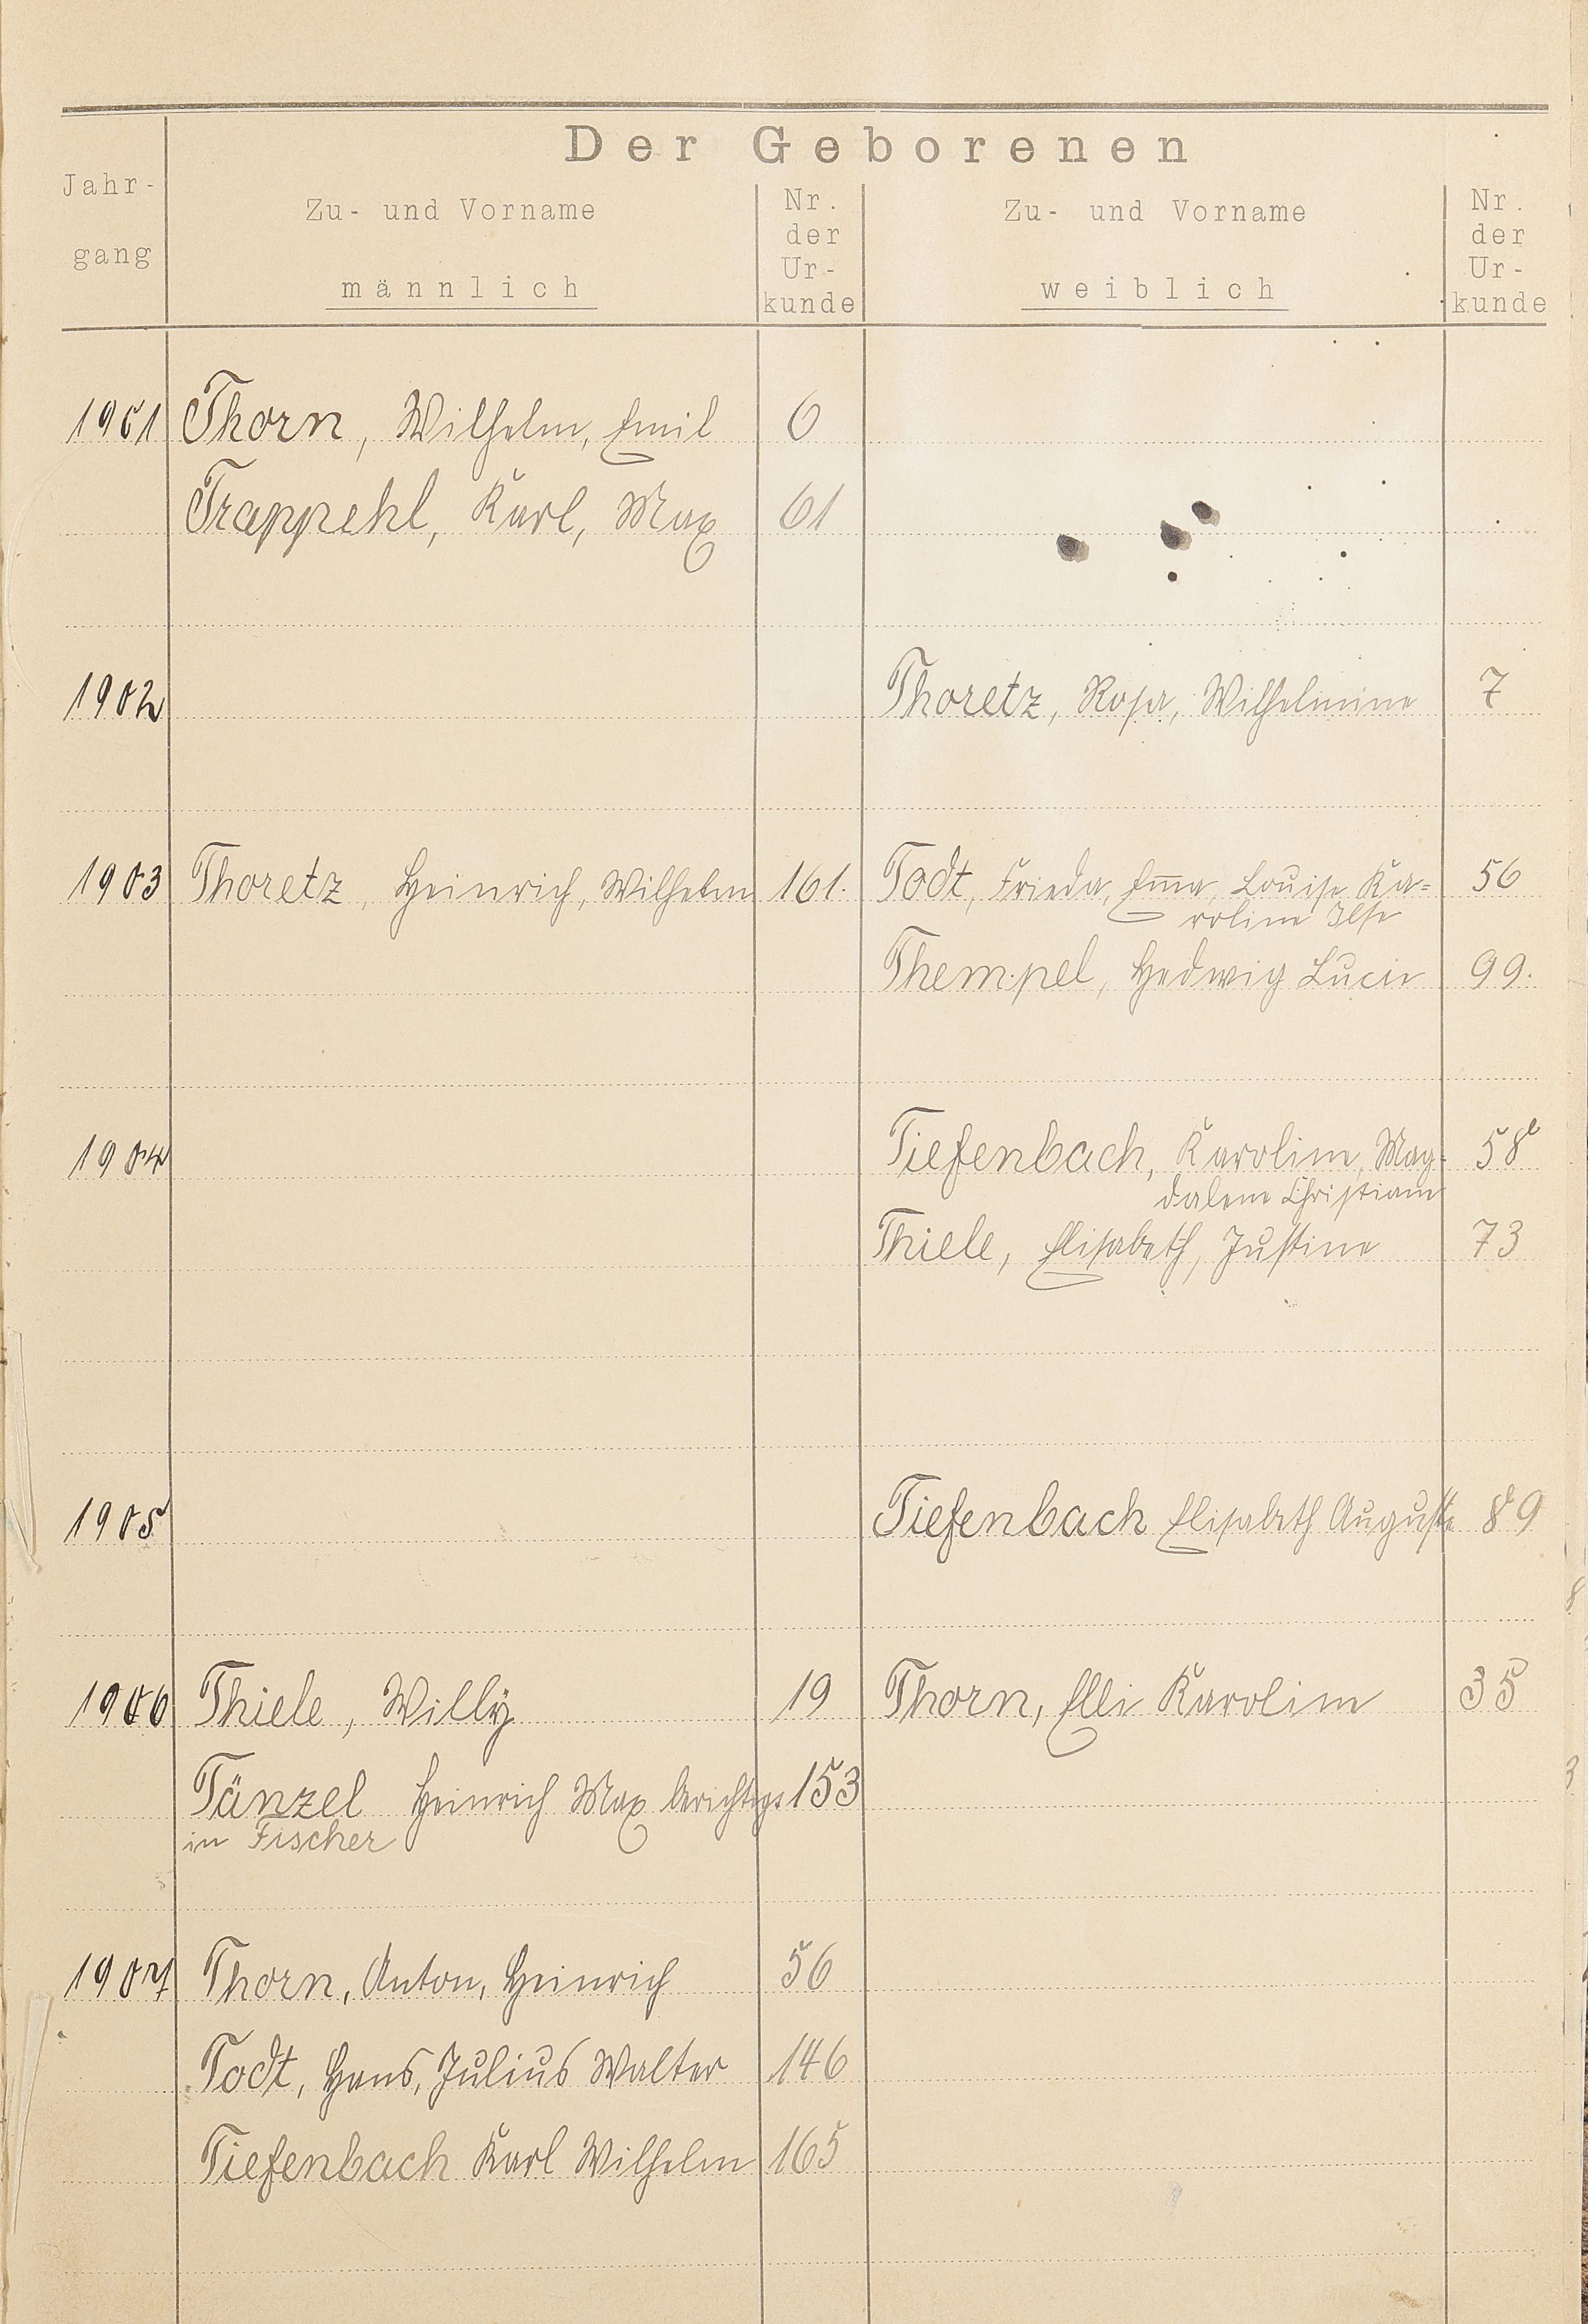 Der Geborenen
Jahr-
gang
Zu- und Vorname
männlich
Nr.
der
Ur-
kunde
Zu- und Vorname
weiblich
Nr.
der
Ur-
kunde
1901 Thorn, Wilhelm, Emil 6
Trappehl, Karl, Max 61
1902 Thoretz, Rosa, Wilhelmine 7
1903 Thoretz, Heinrich, Wilhelm 161. Todt, Frieda, Em̅a, Louise Ka= 56
roline Ilse
Thempel, Hedwig Lucie 99.
1904 Tiefenbach, Karoline, Mag- 58
dalene Christiane
Thiele, Elisabeth, Justine 73
1905 Tiefenbach Elisabeth Auguste 89
1906 Thiele, Willÿ 19 Thorn, Elli Karoline 35
Tänzel Heinrich Max 153
in Fischer
1907 Thorn, Anton, Heinrich 56
Todt, Hans, Julius Walter 146
Tiefenbach Karl Wilhelm 165